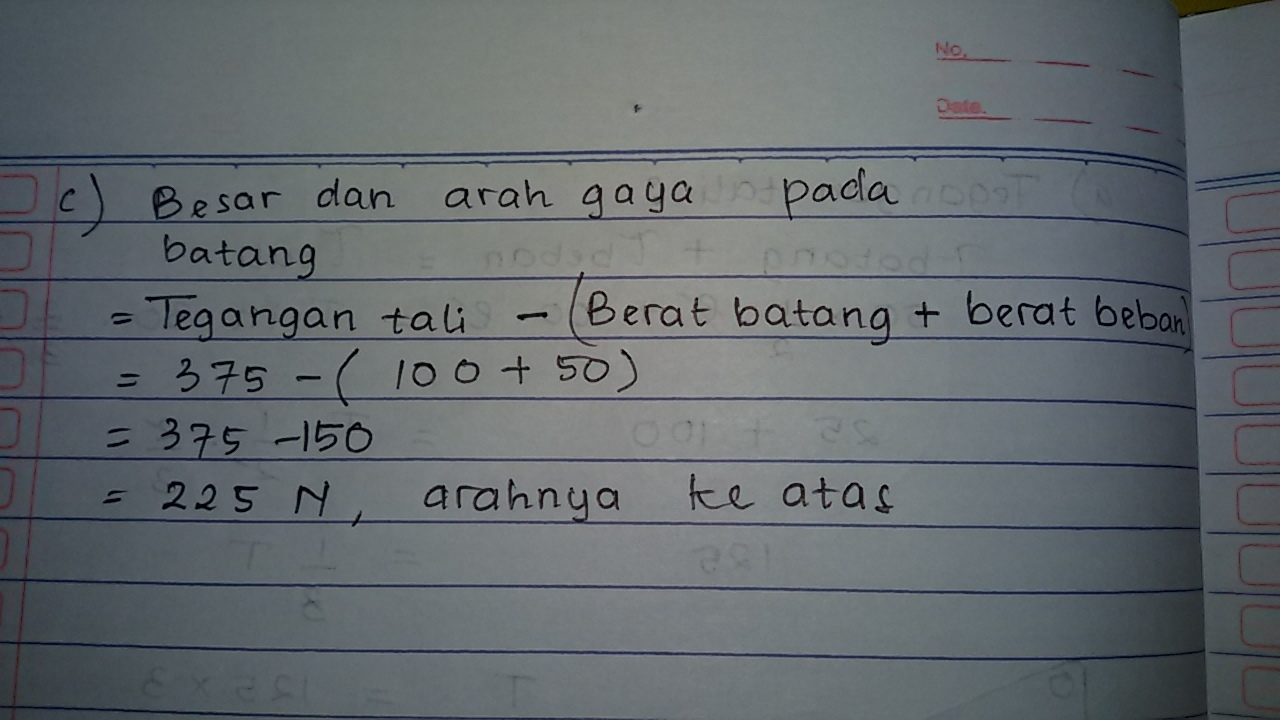 No.
Date.
c) Besar dan arah gaya pada
batang
= Tegangan tali - (Berat batang + berat beban)
= 375 - ( 100 + 50)
= 375 - 150
= 225 N, arahnya ke atas